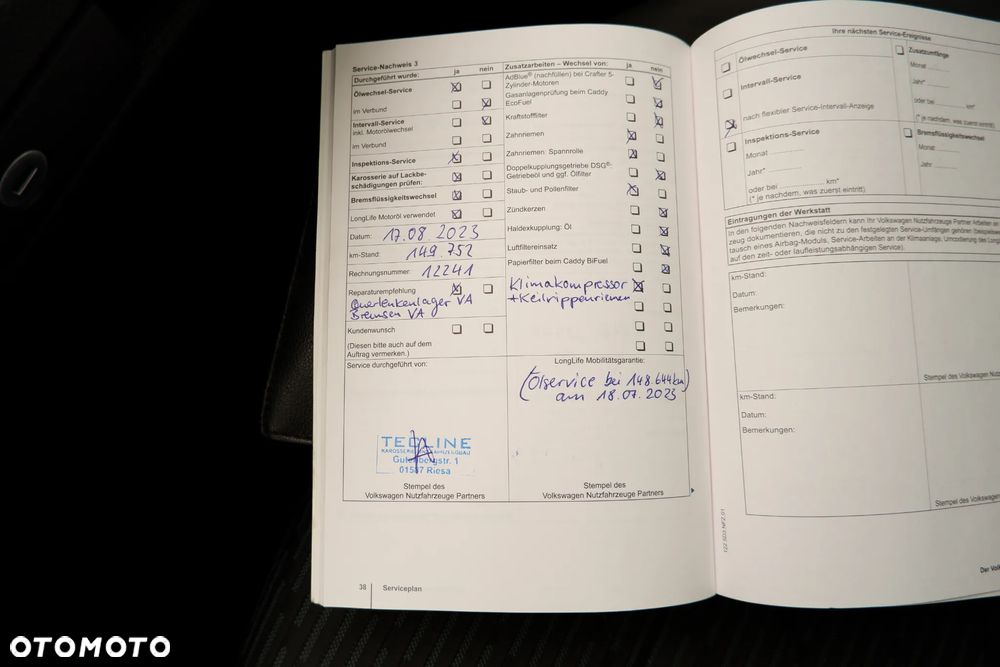 Service-Nachweis 3
Durchgeführt wurde: ja nein
Ölwechsel-Service
im Verbund
Intervall-Service
inkl. Motorölwechsel
im Verbund
Inspektions-Service
Karosserie auf Lackbe-
schädigungen prüfen:
Bremsflüssigkeitswechsel
LongLife Motoröl verwendet
Datum: 17.08.2023
km-Stand: 149.752
Rechnungsnummer: 12241
Reparaturempfehlung
Querlenkenlager VA
Bremsen VA
Kundenwunsch
(Diesen bitte auch auf dem
Auftrag vermerken.)
Service durchgeführt von:
TECLINE
Gutenbergstr. 1
01587 Riesa
Stempel des
Volkswagen Nutzfahrzeuge Partners
Zusatzarbeiten – Wechsel von: ja nein
AdBlue® (nachfüllen) bei Crafter 5-
Zylinder-Motoren
Gasanlagenprüfung beim Caddy
EcoFuel
Kraftstofffilter
Zahnriemen
Zahnriemen: Spannrolle
Doppelkupplungsgetriebe DSG®:
Getriebeöl und ggf. Ölfilter
Staub- und Pollenfilter
Zündkerzen
Haldexkupplung: Öl
Luftfiltereinsatz
Papierfilter beim Caddy BiFuel
Klimakompressor
+Keilrippenriemen
LongLife Mobilitätsgarantie:
(Ölservice bei 148.644km)
am 18.07.2023
Stempel des
Volkswagen Nutzfahrzeuge Partners
38 Serviceplan
Ihre nächsten Service-Ereignisse
Ölwechsel-Service
Intervall-Service
nach flexibler Service-Intervall-Anzeige
Inspektions-Service
Monat
Jahr*
oder bei km*
(* je nachdem, was zuerst eintritt)
Zusatzumfänge
Monat
Jahr*
oder bei km*
(* je nachdem, was zuerst eintritt)
Bremsflüssigkeitswechsel
Monat
Jahr
Eintragungen der Werkstatt
In den folgenden Nachweisfeldern kann Ihr Volkswagen Nutzfahrzeuge Partner Arbeiten an
zeug dokumentieren, die nicht zu den festgelegten Service-Umfängen gehören (beispielsweise
tausch eines Airbag-Moduls, Service-Arbeiten an der Klimaanlage, Umcodierung des Long
auf den zeit- oder laufleistungsabhängigen Service).
km-Stand:
Datum:
Bemerkungen:
Stempel des Volkswagen Nutzfah
km-Stand:
Datum:
Bemerkungen:
Stempel des Volkswagen Nutzfa
122.5D3.NFZ.01
Der Volk
OTOMOTO